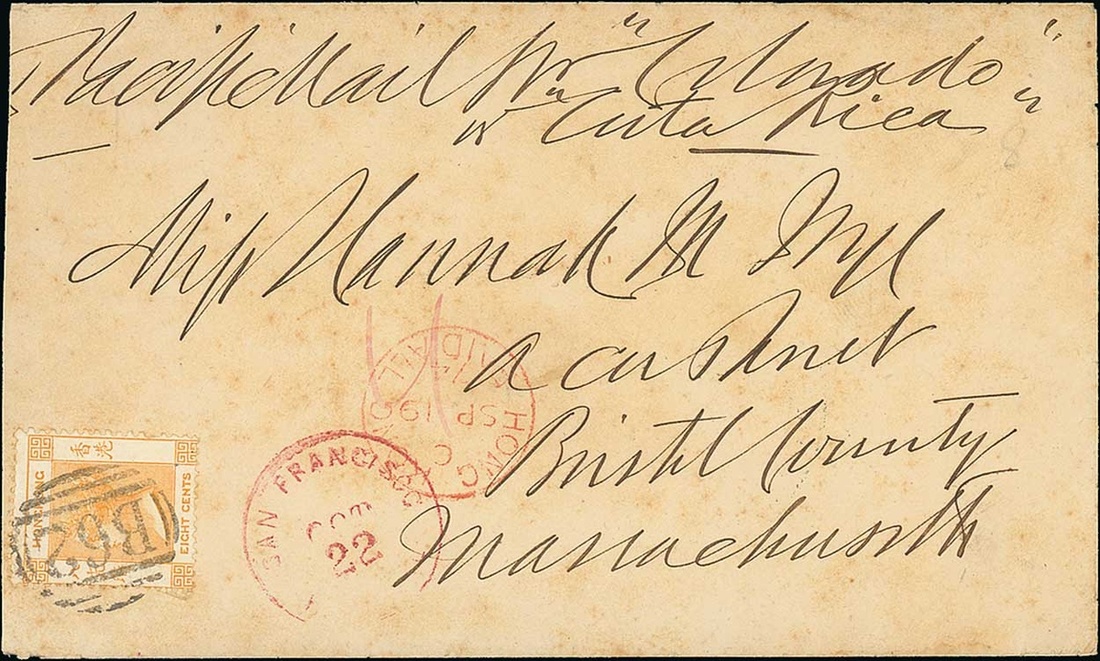 Pacific Mail Pr "Colorado"
or "Costa Rica"
8
Miss Hannah M Nye
Acushnet
Bristol County
Massachusetts
HONG
PAID ALL
SP 19
SAN FRANCISCO
OCT
22
香港
HONG KONG
EIGHT CENTS
B62